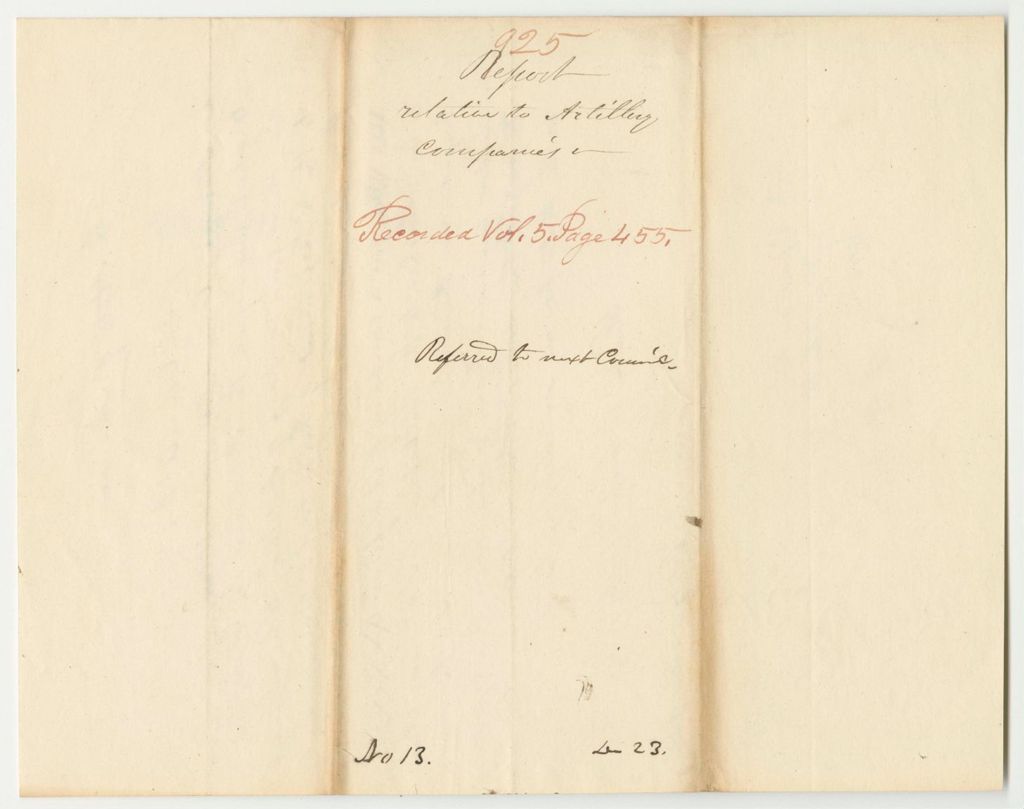 925
Report
relative to Artillery
Companies
Recorded Vol. 5. Page 455.
Referred to next Counc.
No 13.
23.